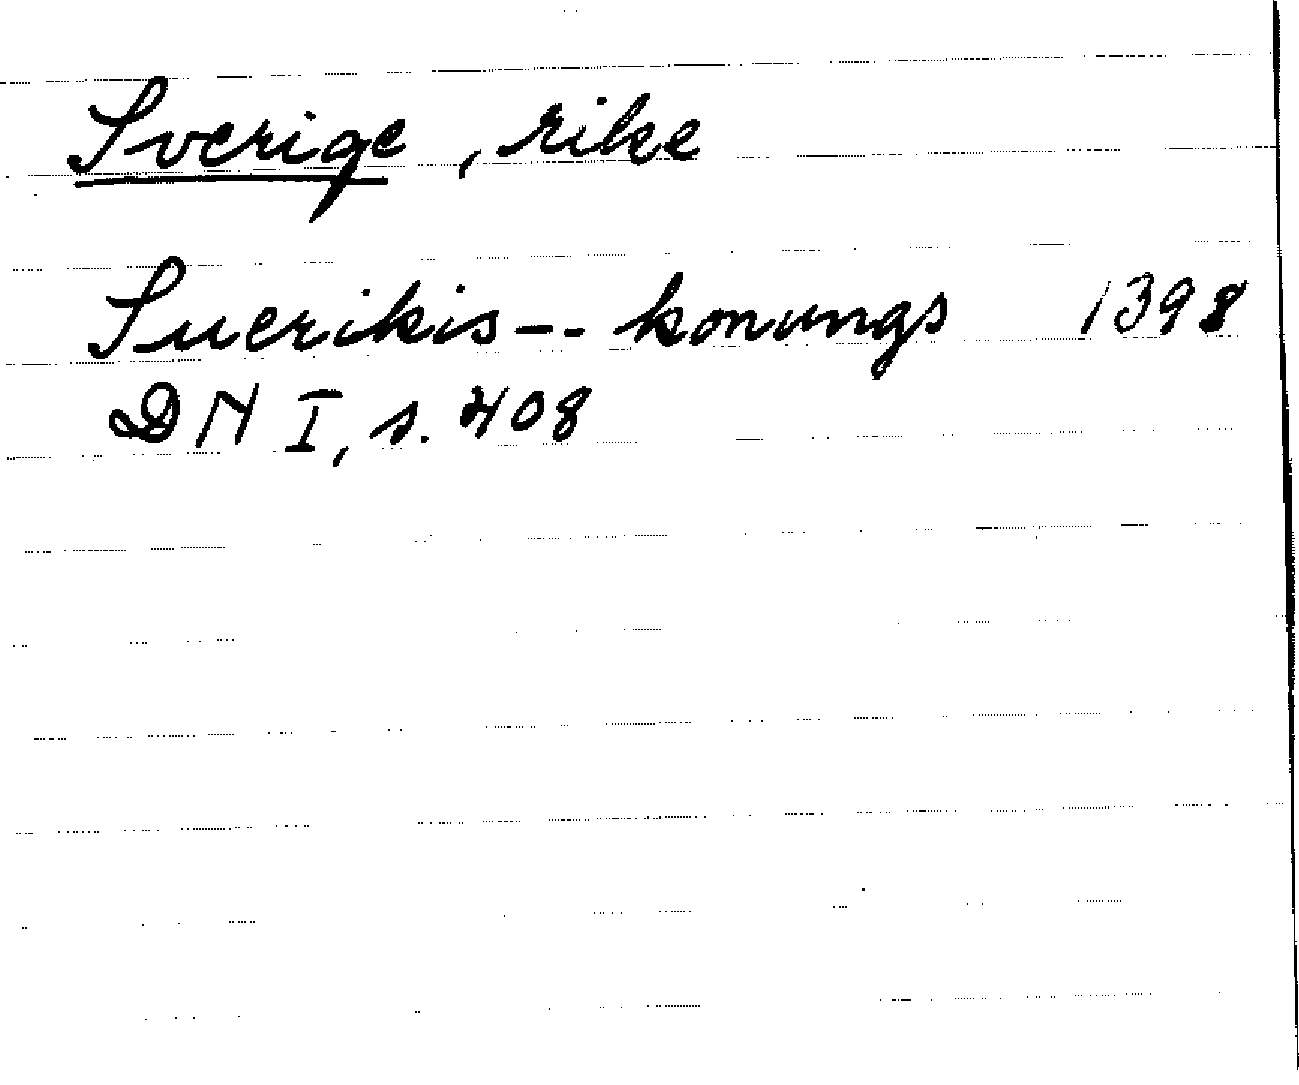 Sverige, rike
Suerikis -- konungs 1398
DN I, s. 408